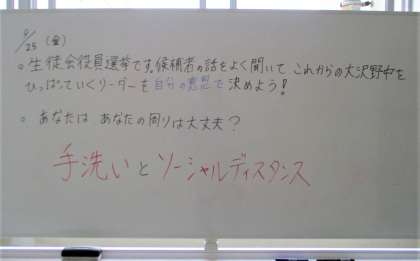 9/25(金)
○生徒会役員選挙です。候補者の話をよく聞いて これからの大沢野中を
ひっぱっていくリーダーを自分の意思で決めよう!
○ あなたは あなたの周りは大丈夫?
手洗いとソーシャルディスタンス